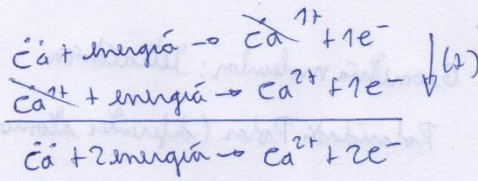 c̈ä + energía → Ca¹⁺ + 1e⁻
Ca¹⁺ + energía → Ca²⁺ + 1e⁻ (+)
c̈ä + 2 energía → Ca²⁺ + 2e⁻